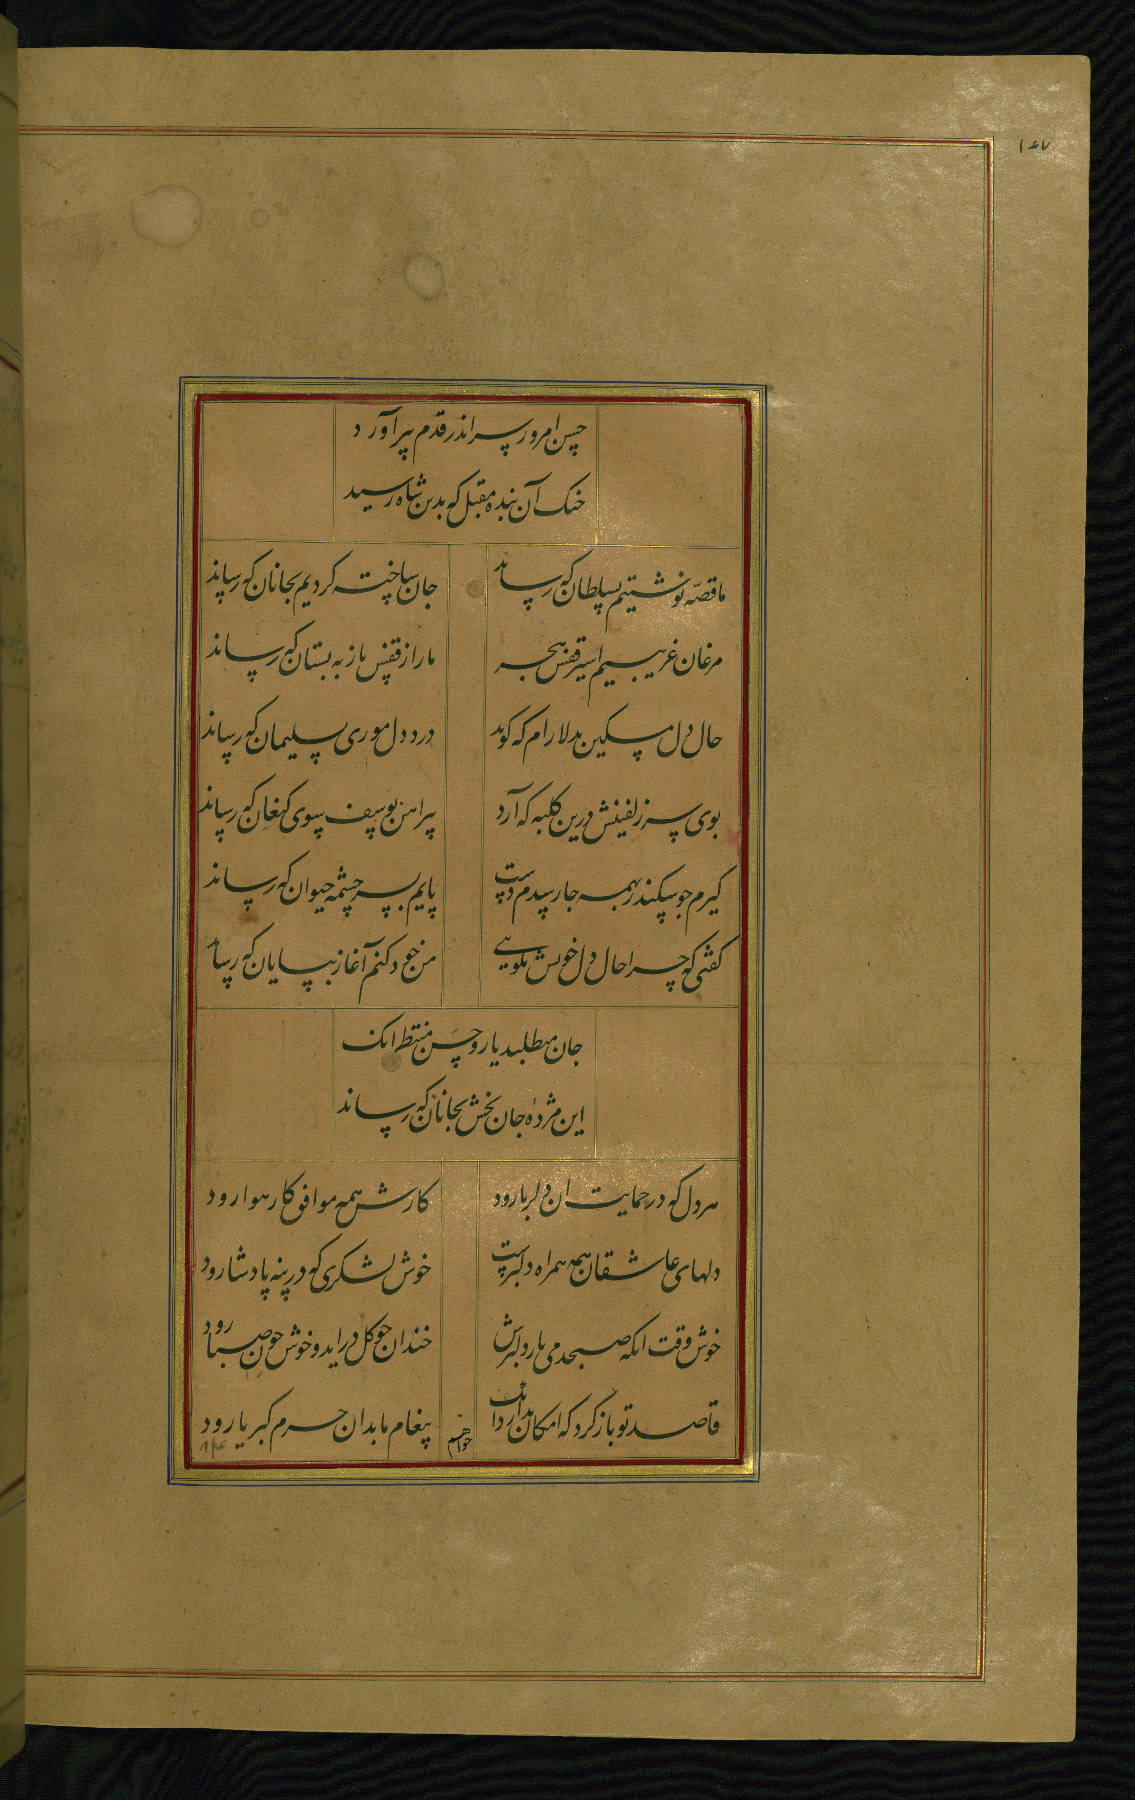 ۱۴۷
حسن امروز سر اندر قدم پیر آورد
خنک آن بنده مقبل که بدین شاه رسید
ما قصه نوشتیم بسلطان که رساند
جان ساخته کردیم بجانان که رساند
مرغان غریبیم اسیر قفس هجر
ما را ز قفس باز به بستان که رساند
حال دل مسکین بدلارام که گوید
درد دل موری بسلیمان که رساند
بوی سر زلفینش درین کلبه که آرد
پیراهن یوسف بسوی کنعان که رساند
گیرم چو سکندر بهمه جا رسدم دست
پایم بسر چشمه حیوان که رساند
گفتی که چرا حال دل خویش نگویی
من خود کنم آغاز بپایان که رساند
جان میطلبد یار و حسن منتظر اینک
این مژدهٔ جان بخش بجانان که رساند
هر دل که در حمایت ان دلربا رود
کارش همه موافق کار هوا رود
دلهای عاشقان همه همراه دلبرست
خوش لشکری که در پئه پادشا رود
خوش وقت انکه صبحدمی یار دلبرش
خندان چو گل دراید و خوش چون صبا رود
قاصد تو باز گرد که امکان ندارد انک
پیغام ما بدان حرم کبریا رود
خواهم